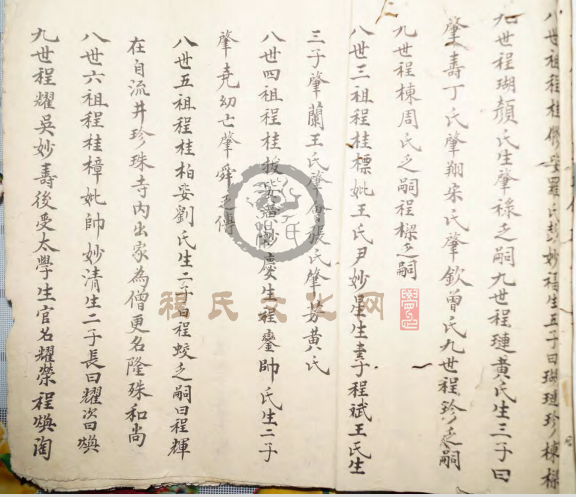 八世祖程桂 妥羅氏彭妙福生五子曰瑚璉珍棟樑
九世程瑚顏氏生肇祿乏嗣九世程璉黃氏生三子曰
肇壽丁氏肇翔宋氏肇欽曾氏九世程珍乏嗣
九世程棟周氏乏嗣程樑乏嗣
八世三祖程桂標妣王氏尹妙星生 子程斌王氏生
三子肇蘭王氏肇 張氏肇芳黃氏
八世四祖程桂 妙慶生程鑾帥氏生二子
肇堯幼亡肇舜乏傳
八世五祖程桂柏妥劉氏生二子曰程蛟乏嗣曰程輝
在自流井珍珠寺內出家為僧更名隆殊和尚
八世六祖程桂樟妣帥妙清生二子長曰耀次曰煥
九世程耀吳妙壽後受太學生官名耀榮程煥陶
程氏文化网